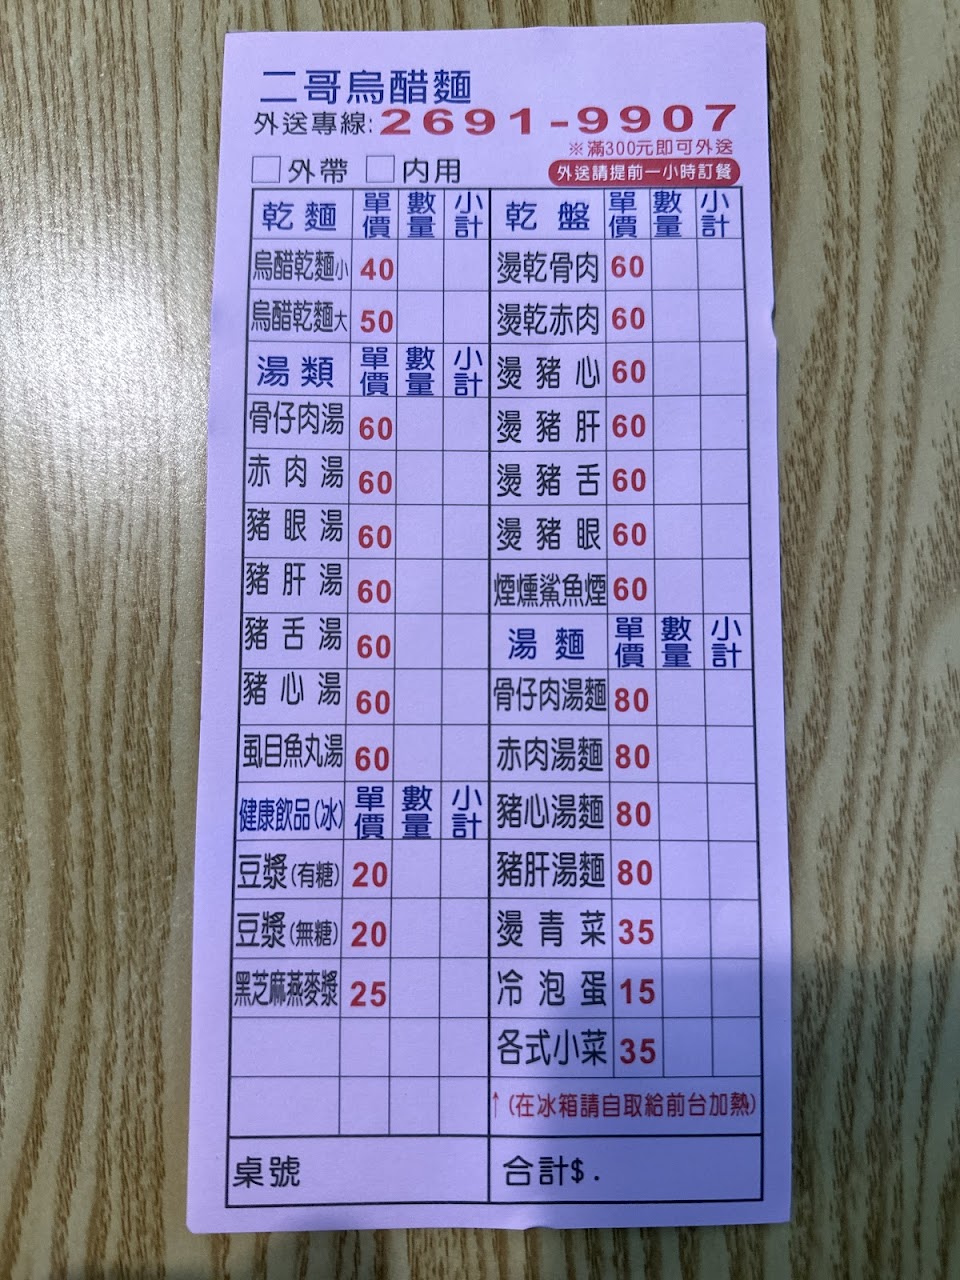 二哥烏醋麵
外送專線:2691-9907
※滿300元即可外送
□外帶 □內用
外送請提前一小時訂餐
乾麵 單價 數量 小計
烏醋乾麵小 40
烏醋乾麵大 50
湯類 單價 數量 小計
骨仔肉湯 60
赤肉湯 60
豬眼湯 60
豬肝湯 60
豬舌湯 60
豬心湯 60
虱目魚丸湯 60
健康飲品(冰) 單價 數量 小計
豆漿(有糖) 20
豆漿(無糖) 20
黑芝麻燕麥漿 25
桌號
乾盤 單價 數量 小計
燙乾骨肉 60
燙乾赤肉 60
燙豬心 60
燙豬肝 60
燙豬舌 60
燙豬眼 60
煙燻鯊魚煙 60
湯麵 單價 數量 小計
骨仔肉湯麵 80
赤肉湯麵 80
豬心湯麵 80
豬肝湯麵 80
燙青菜 35
冷泡蛋 15
各式小菜 35
↑(在冰箱請自取給前台加熱)
合計$.